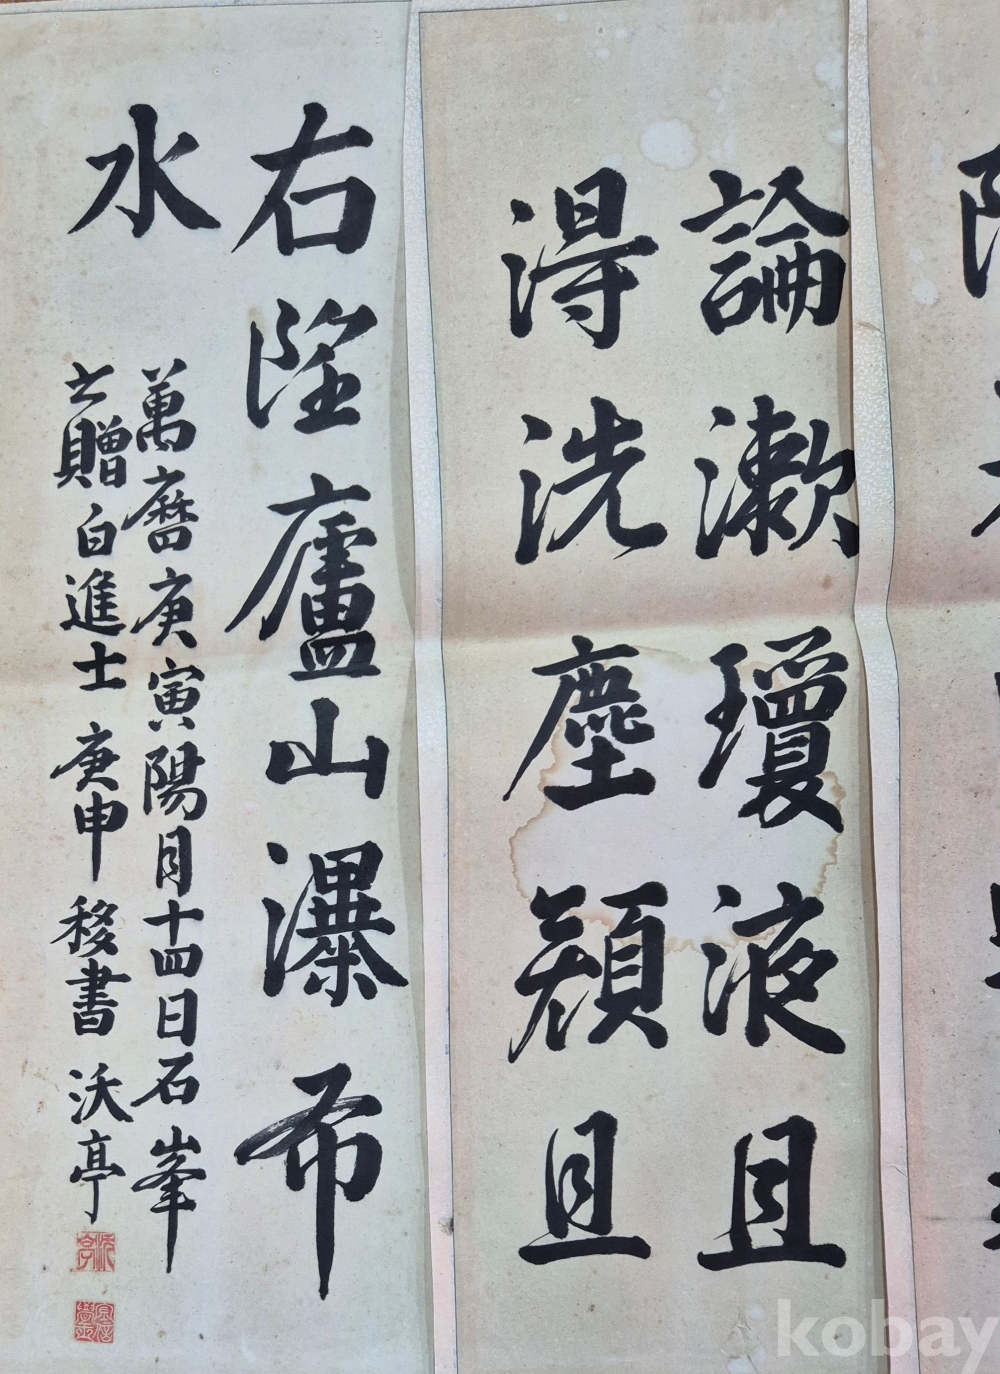 論漱瓊液且
得洗塵顔且
右望廬山瀑布
水
萬曆庚寅陽月十四日石峯
書贈白進士 庚申移書 沃亭
kobay